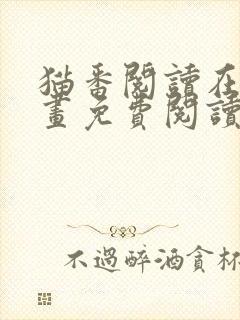 猫番閱讀在
畫免費閱讀
不過醉酒貪杯